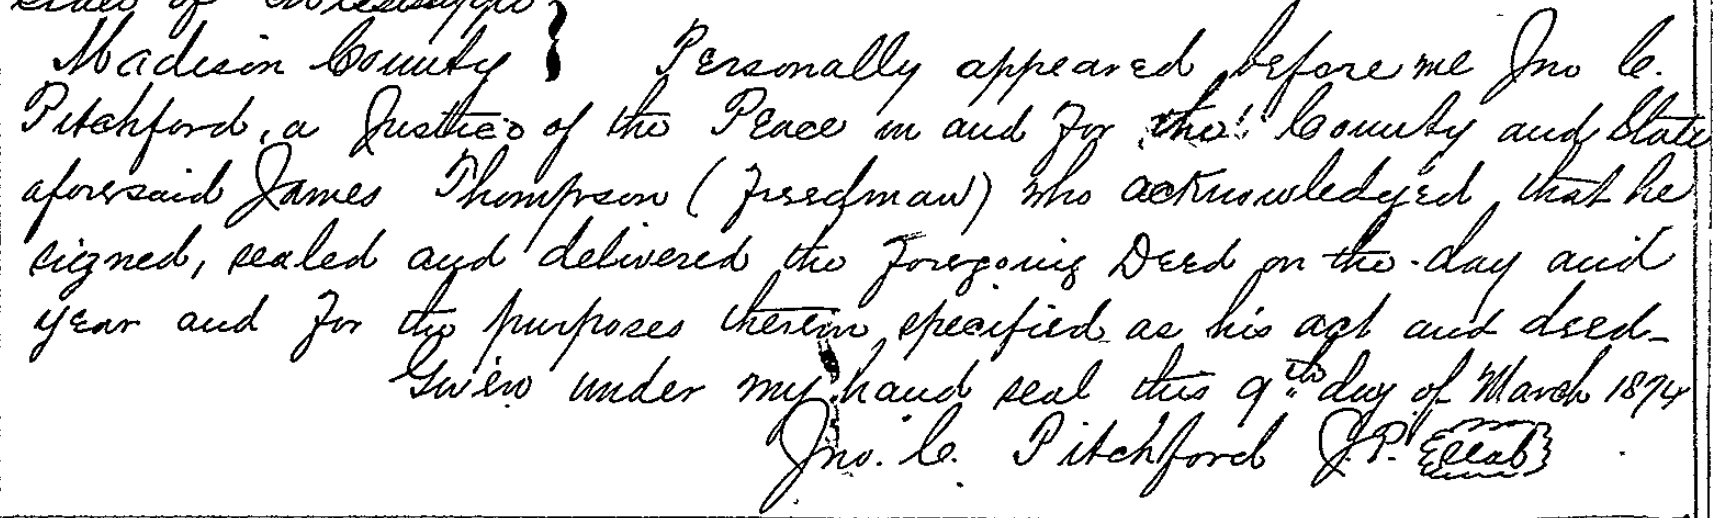 State of Mississippi
Madison County } Personally appeared before me Jno C.
Pitchford, a Justice of the Peace in and for the County and State
aforesaid James Thompson (Freedman) who acknowledged that he
signed, sealed and delivered the foregoing Deed on the day and
year and for the purposes therein specified as his act and deed-
Given under my hand seal this 9th day of March 1874
Jno. C. Pitchford J.P. Seal